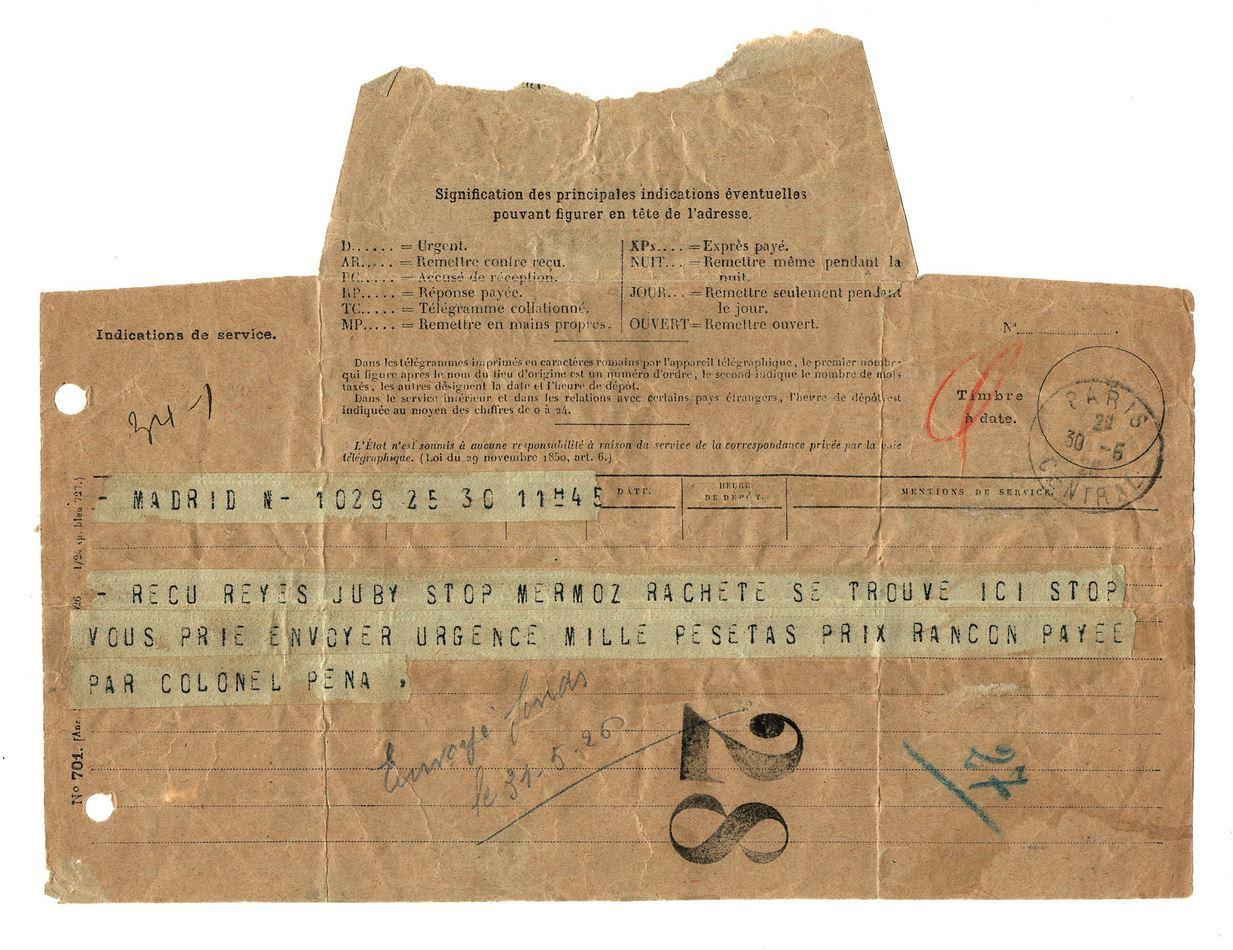 Signification des principales indications éventuelles
pouvant figurer en tête de l'adresse.
D...... = Urgent.
AR..... = Remettre contre reçu.
PC..... = Accusé de réception.
RP..... = Réponse payée.
TC..... = Télégramme collationné.
MP..... = Remettre en mains propres.
XPx.... = Exprès payé.
NUIT... = Remettre même pendant la
nuit.
JOUR... = Remettre seulement pendant
le jour.
OUVERT= Remettre ouvert.
Indications de service.
N°
Timbre
à date.
PARIS
30 -5
CENTRAL
Dans les télégrammes imprimés en caractères romains par l'appareil télégraphique, le premier nombre
qui figure après le nom du lieu d'origine est un numéro d'ordre, le second indique le nombre de mots
taxés, les autres désignent la date et l'heure de dépôt.
Dans le service intérieur et dans les relations avec certains pays étrangers, l'heure de dépôt est
indiquée au moyen des chiffres de 0 à 24.
L'État n'est soumis à aucune responsabilité à raison du service de la correspondance privée par la voie
télégraphique. (Loi du 29 novembre 1850, art. 6.)
- MADRID N- 1029 25 30 11H45
DATE.
HEURE
DE DÉPÔT.
MENTIONS DE SERVICE.
- RECU REYES JUBY STOP MERMOZ RACHETE SE TROUVE ICI STOP
VOUS PRIE ENVOYER URGENCE MILLE PESETAS PRIX RANCON PAYEE
PAR COLONEL PENA ,
Envoyé fonds
le 31-5-26
28
27
N° 701. [Anc.